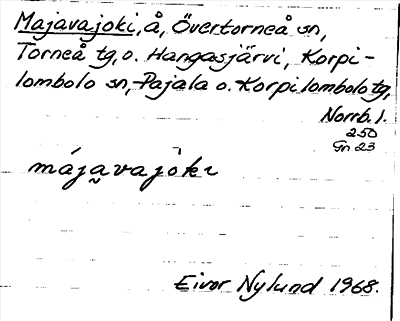 Majavajoki, å, Övertorneå sn,
Torneå tg, o. Hangasjärvi, Korpi-
lombolo sn, Pajala o. Korpilombolo tg,
Norrb. l.
250
Gn 23
májavajòki
Eivor Nylund 1968.